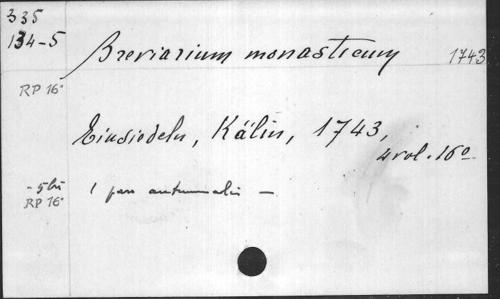 335
134-5
Breviarium monasticum 1743
RP 16°
Einsiedeln, Kälin, 1743,
4 vol. 16°
- 5bis 1 pars autumnalis —
RP 16°